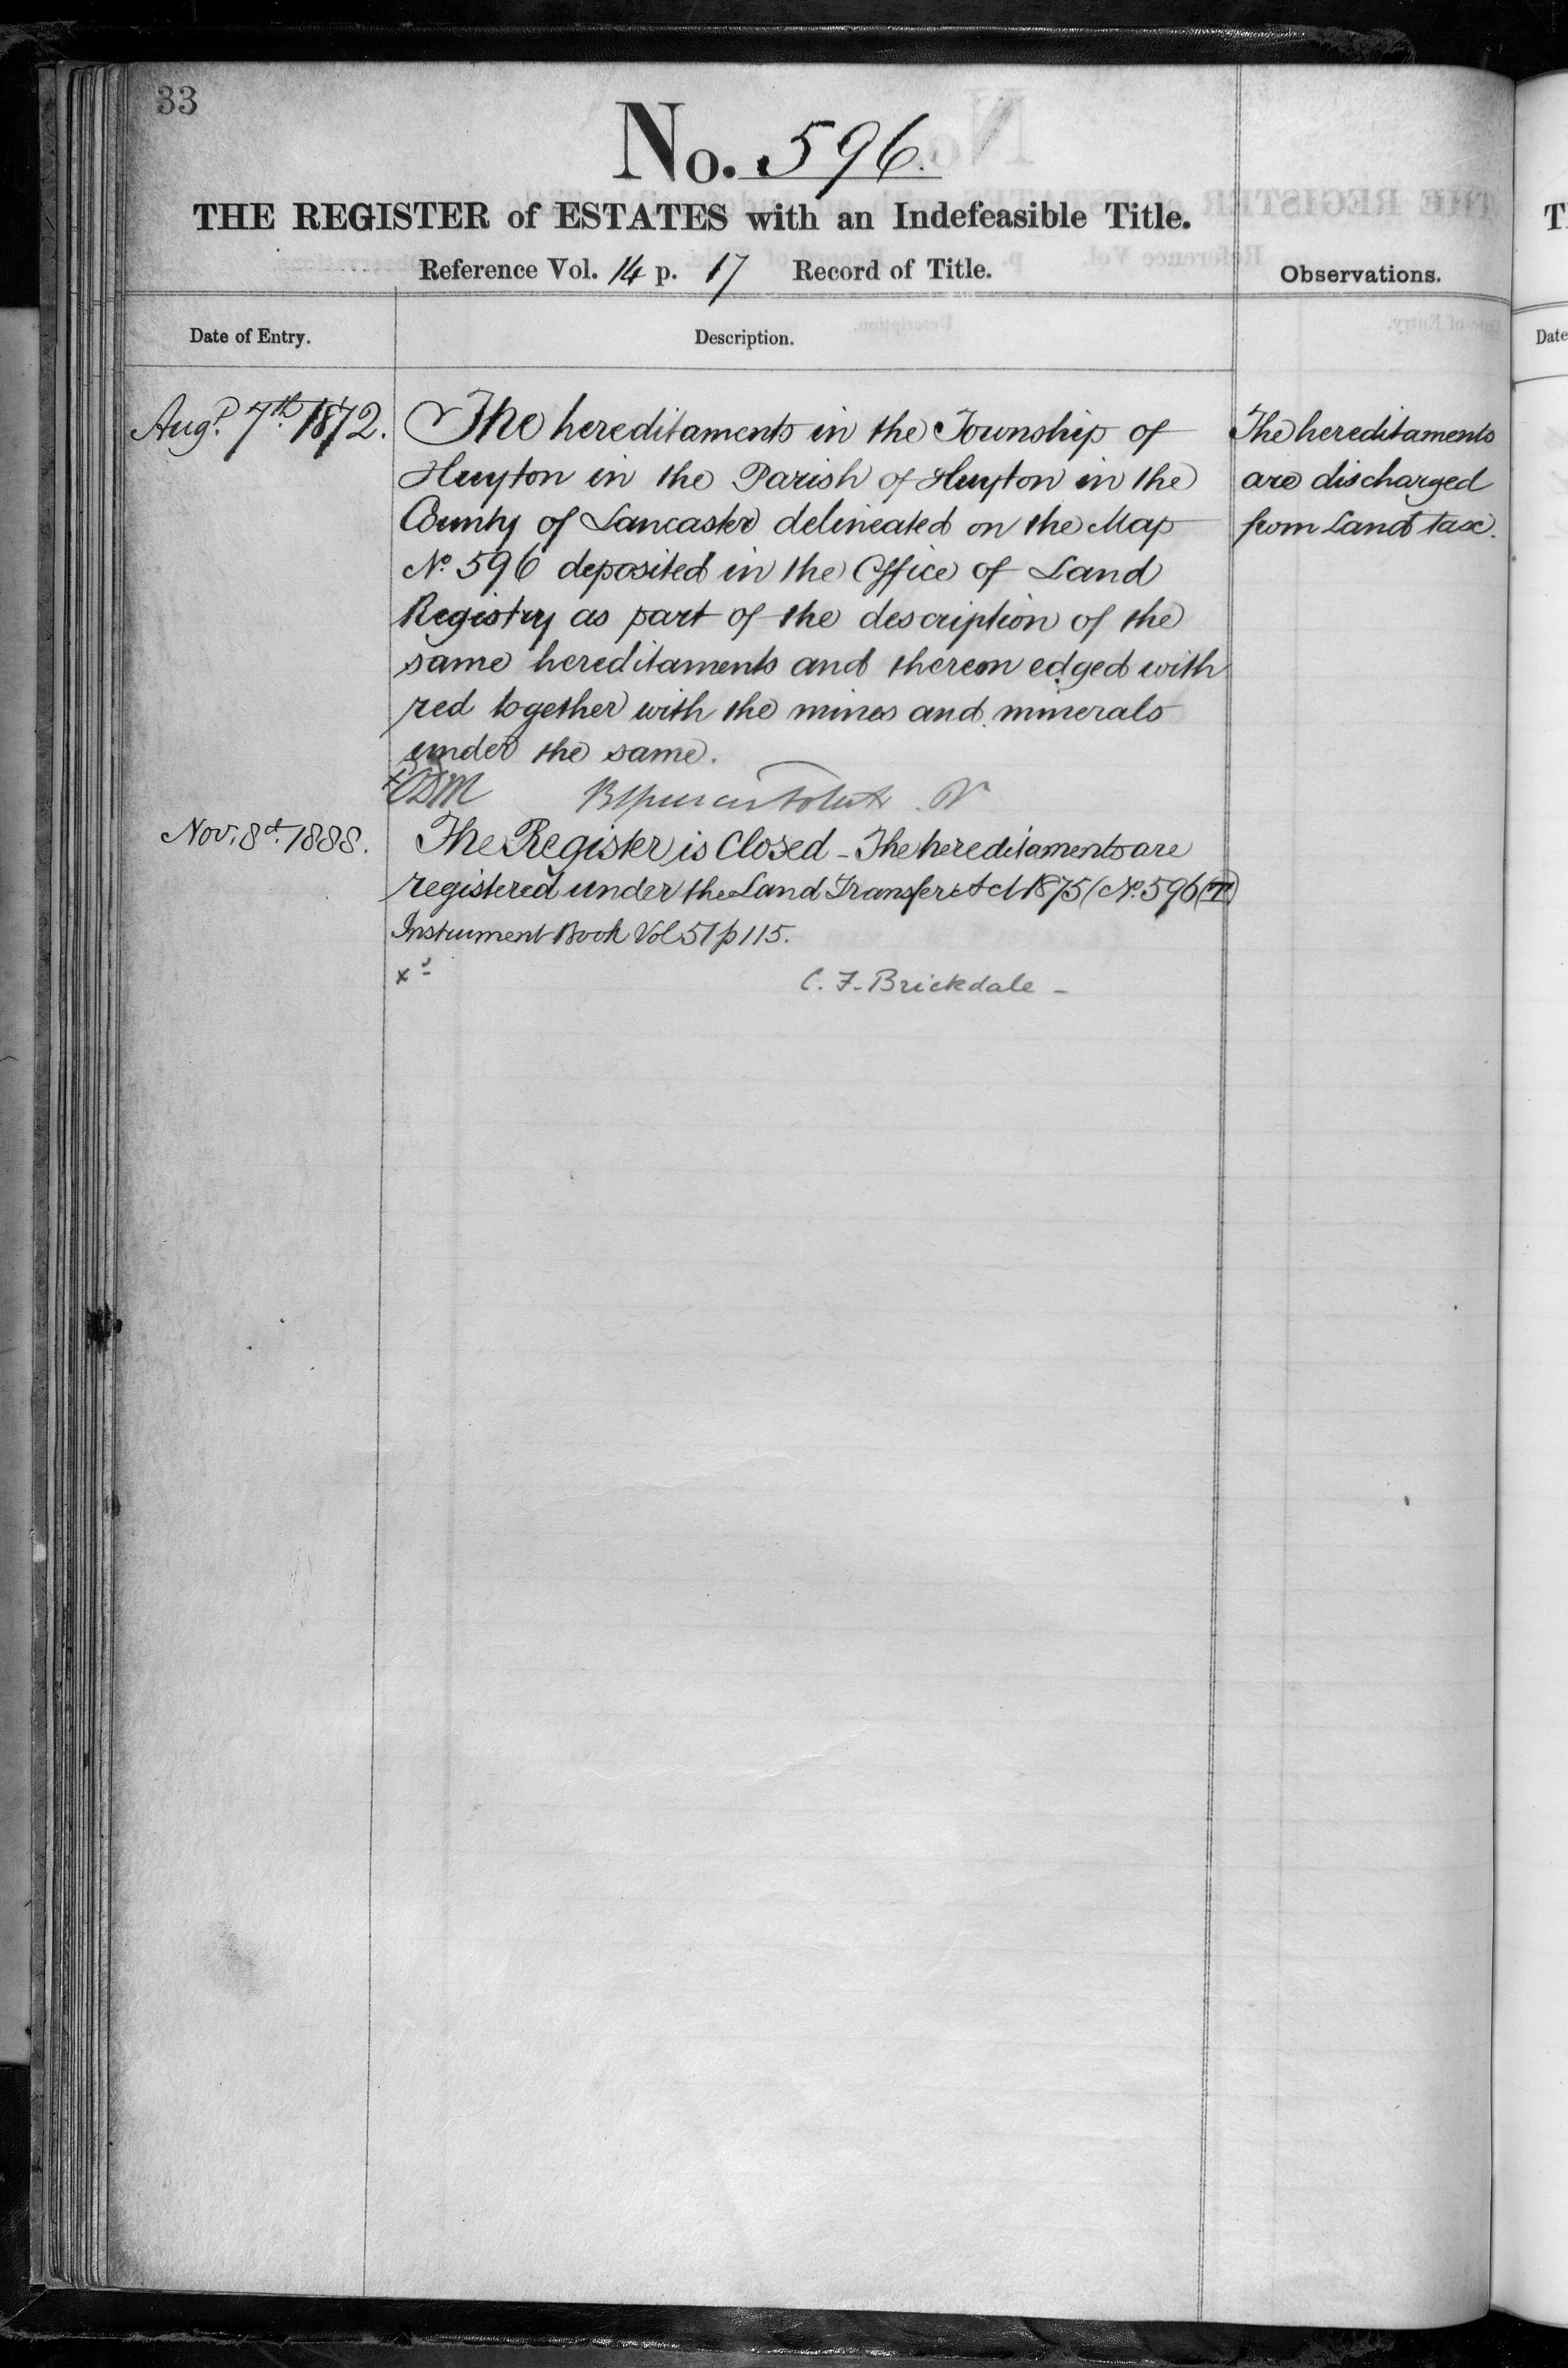 33
No. 596.
THE REGISTER of ESTATES with an Indefeasible Title.
Reference Vol. 14 p. 17 Record of Title.
Observations.
Date of Entry.
Description.
Augt. 7th. 1872.
The hereditaments in the Township of
Huyton in the Parish of Huyton in the
County of Lancaster delineated on the Map
No. 596 deposited in the Office of Land
Registry as part of the description of the
same hereditaments and thereon edged with
red together with the mines and minerals
under the same.
The hereditaments
are discharged
from Land tax.
Nov. 8th. 1888.
The Register is Closed - The hereditaments are
registered under the Land Transfer Act 1875 (No. 596 (T.)
Instrument Book Vol 51 p 115.
C. F. Brickdale -
T
Date